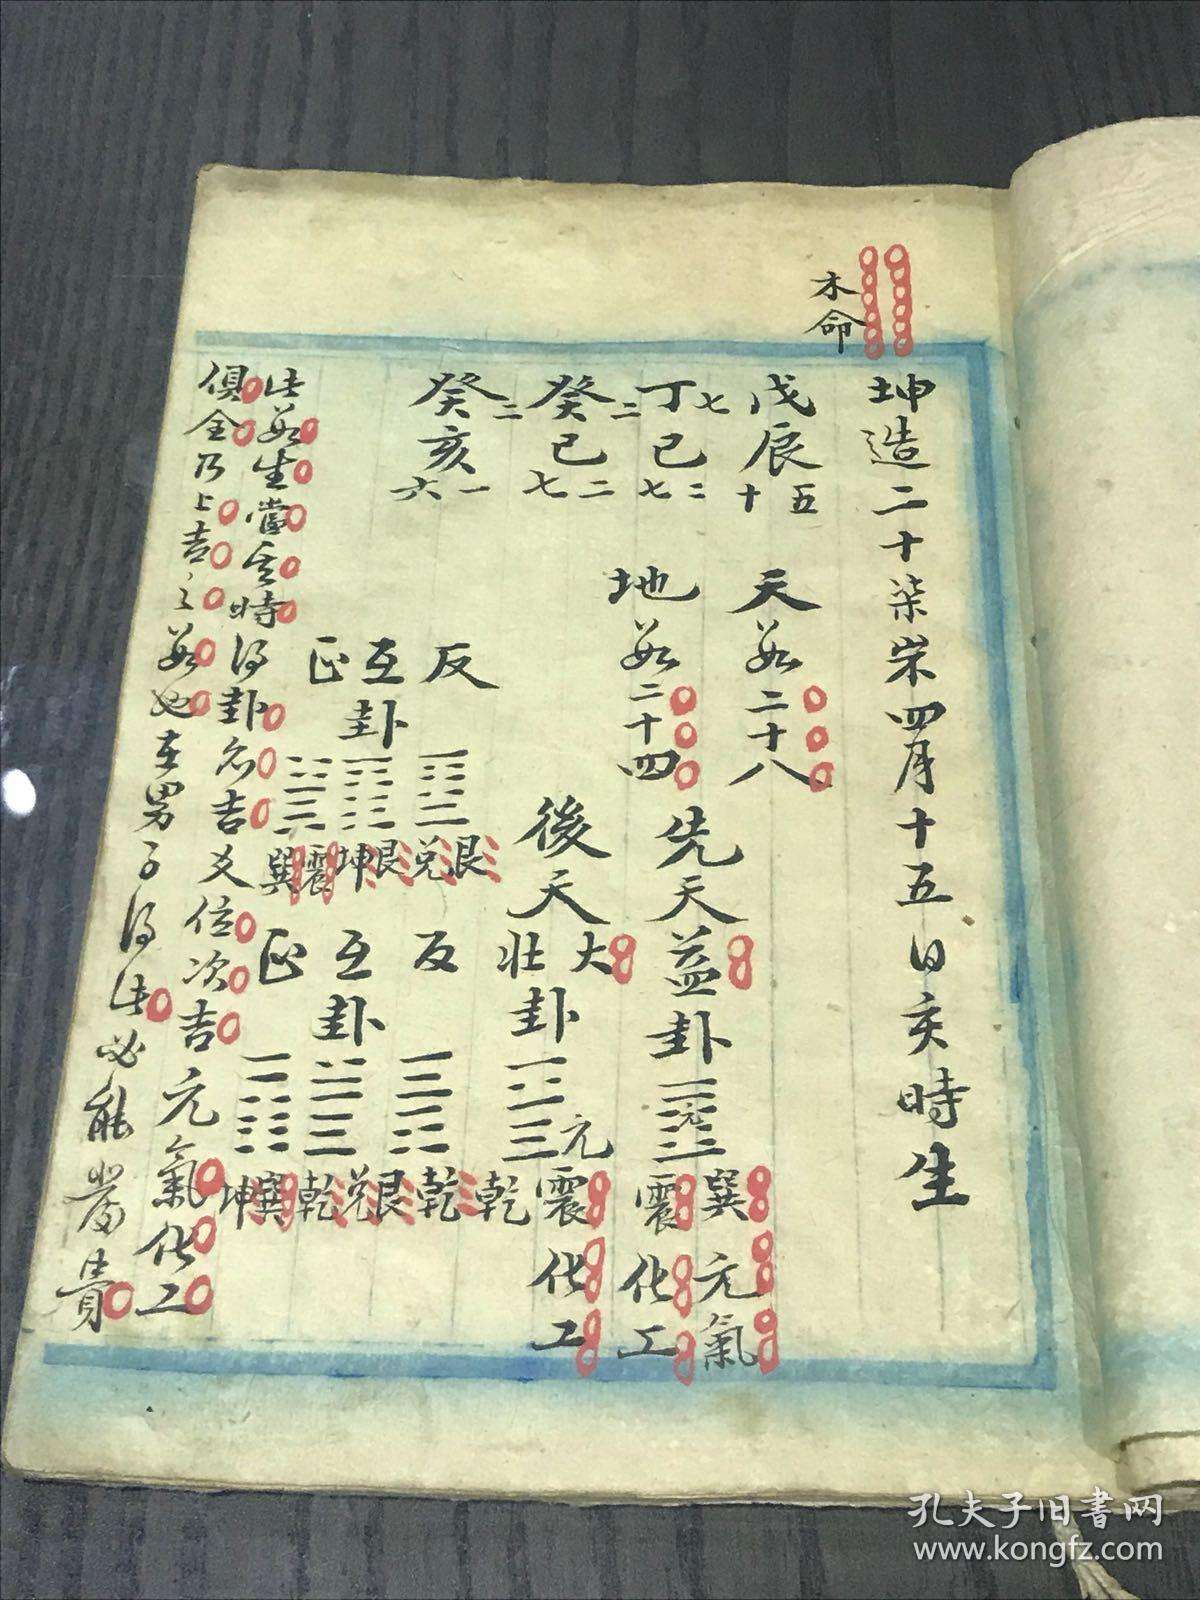 木命
坤造二十柒岁四月十五日亥時生
戊辰 五十
丁七巳 二七
癸二巳 二七
癸二亥 一六
天数二十八
地数二十四
先天益卦 元 巽震 元氣 化工
後天大壮卦 元 震乾 化工
反 艮兑
互卦 艮坤
正 震巽
反 乾
互卦 兑乾
正 巽坤
此数生當其時得卦名吉爻位次吉元氣化工
俱全乃上吉之数也在男子得此必能發貴
孔夫子旧書网
www.kongfz.com